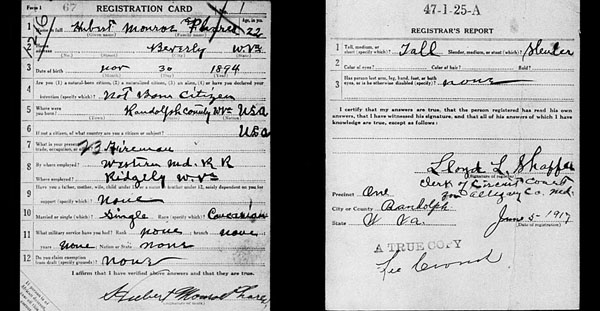 Form 1 67 REGISTRATION CARD 1
1 Hubert Monroe Phares Age, in yrs. 22
2 Beverly W.Va
3 Date of birth Nov 30 1894
4 Are you (1) a natural-born citizen, (2) a naturalized citizen, (3) an alien, (4) or have you declared your intention (specify which)? Nat Born Citizen
5 Where were you born? Randolph County W.Va USA
6 If not a citizen, of what country are you a citizen or subject? USA
7 What is your present trade, occupation, or office? 23 Fireman
8 By whom employed? Western Md. R R
Where employed? Ridgely W.Va
9 Have you a father, mother, wife, child under 12, or a sister or brother under 12, solely dependent on you for support (specify which)? None
10 Married or single (which)? Single Race (specify which)? Caucasian
11 What military service have you had? Rank none; branch none;
years none Nation or State none
12 Do you claim exemption from draft (specify grounds)? none
I affirm that I have verified above answers and that they are true.
Hubert Monroe Phares
47-1-25-A
REGISTRAR'S REPORT
1 Tall, medium, or short (specify which)? Tall Slender, medium, or stout (which)? Slender
2 Color of eyes? Color of hair? Bald?
3 Has person lost arm, leg, hand, foot, or both eyes, or is he otherwise disabled (specify)? none
I certify that my answers are true, that the person registered has read his own answers, that I have witnessed his signature, and that all of his answers of which I have knowledge are true, except as follows:
Lloyd L. Shaffer
(Signature of registrar)
Clerk of Circuit Court
for Allegany Co. Md.
Precinct One
City or County Randolph
State W Va. June 5 - 1917
(Date of registration)
A TRUE COPY